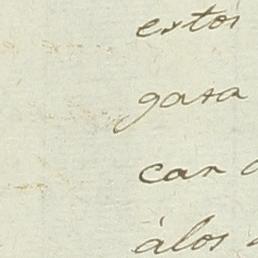 estos
gara
car
álos